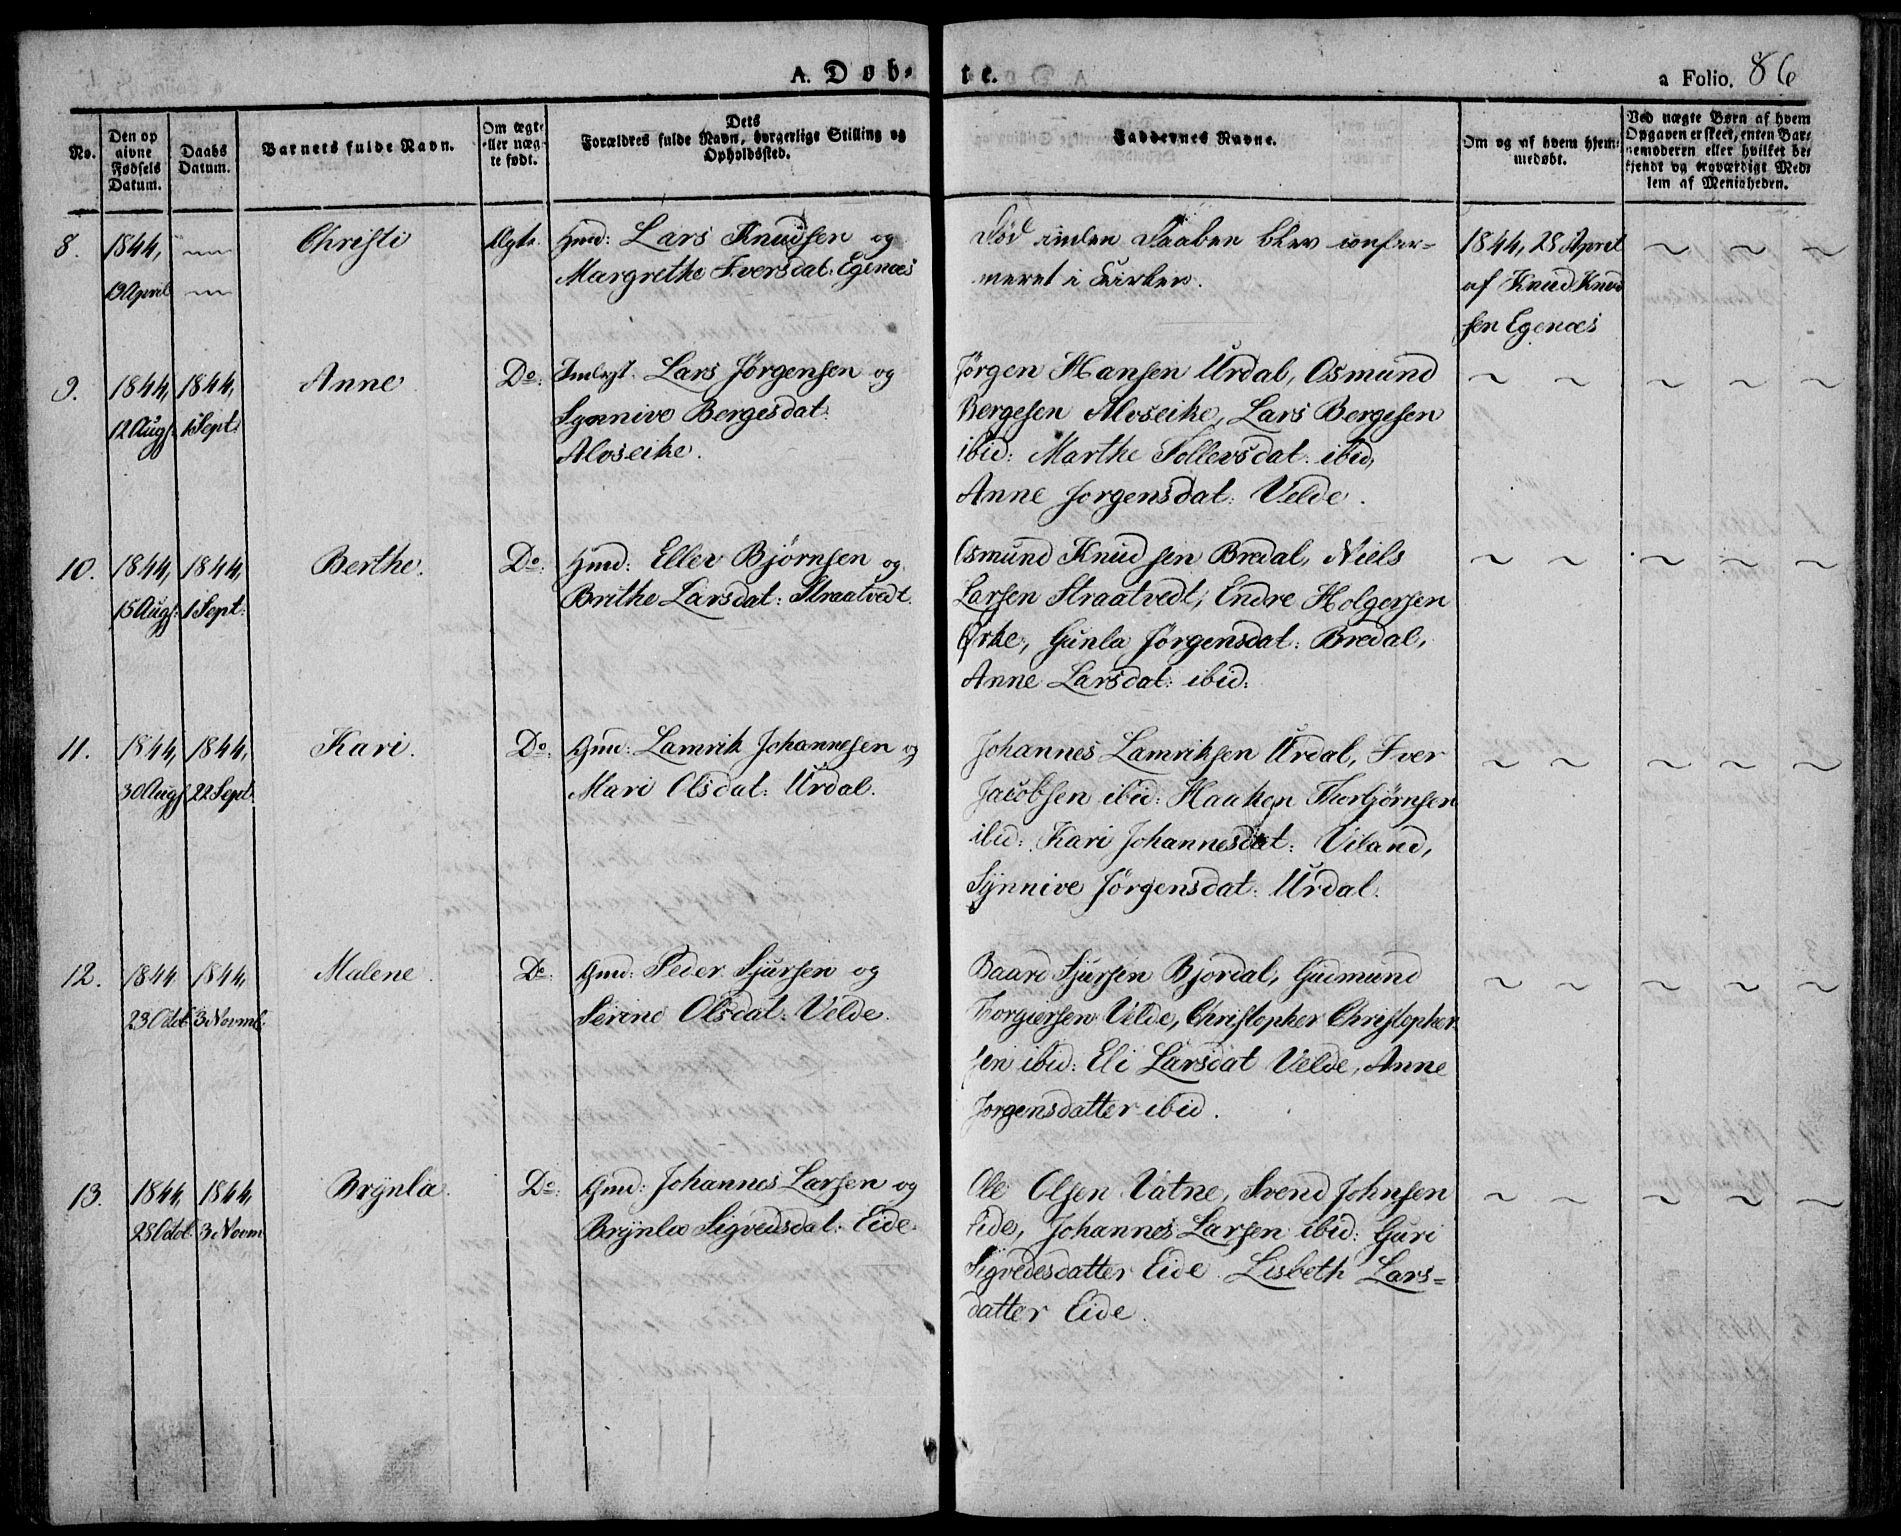 A. Døb-te.
a Folio. 86
No.
Den op
givne
Fødsels
Datum.
Daabs
Datum.
Barnets fulde Navn.
Om ægte
eller uæg-
te født.
Dets
Forældres fulde Navn, borgerlige Stilling og
Opholdssted.
Faddernes Navne.
Om og af hvem hjem-
medøbt.
Ved uægte Børn af hvem
Opgaven er skeet, enten Bar-
nemoderen eller hvilket be-
kjendt og troværdigt Med-
lem af Menigheden.
8. 1844, Christi Ægte. Gmd: Lars Knudsen og
13 April Margrethe Iversdat: Egenæs
Død inden Daaben blev confir-
meret i Kirken.
1844, 28 April
af Knud Knud
sen Egenæs
9. 1844, 1844, Anne Do: Inderst. Lars Jørgensen og
12 Aug: 1 Sept: Synnive Børgesdat:
Alvseike.
Jørgen Hansen Urdal, Osmund
Børgesen Alvseike, Lars Børgesen
ibid: Marthe Tollevsdat: ibid,
Anne Jørgensdat: Velde.
10. 1844, 1844, Berthe. Do: Gmd: Eller Bjørnsen og
15 Aug: 1 Sept: Brithe Larsdat: Straatvedt
Osmund Knudsen Bredal, Niels
Larsen Straatvedt, Endre Holgersen
Ørke, Gunla Jørgensdat: Bredal,
Anne Larsdat: ibid:
11. 1844, 1844, Kari. Do: Gmd: Lamrik Johannesen og
30 Aug: 22 Sept: Mari Olsdat: Urdal.
Johannes Lamriksen Urdal, Iver
Jacobsen ibid: Haaken Thorbjørnsen
ibid: Kari Johannesdat: Viland,
Synnive Jørgensdat: Urdal.
12. 1844 1844, Malene. Do: Gmd: Peder Sjursen og
23 Octob: 3 Novmb: Serine Olsdat: Velde.
Baard Sjursen Bjordal, Gudmund
Torgiersen Velde, Christopher Christopher
sen ibid: Eli Larsdat Velde, Anne
Jørgensdatter ibid.
13. 1844, 1844, Brynla. Do: Gmd: Johannes Larsen og
28 Octob: 3 Novm Brynla Sigvedsdat: Eide.
Ole Olsen Vatne, Svend Johnsen
Eide, Johannes Larsen ibid: Guri
Sigvedesdatter Eide. Lisbeth Lars-
datter Eide.